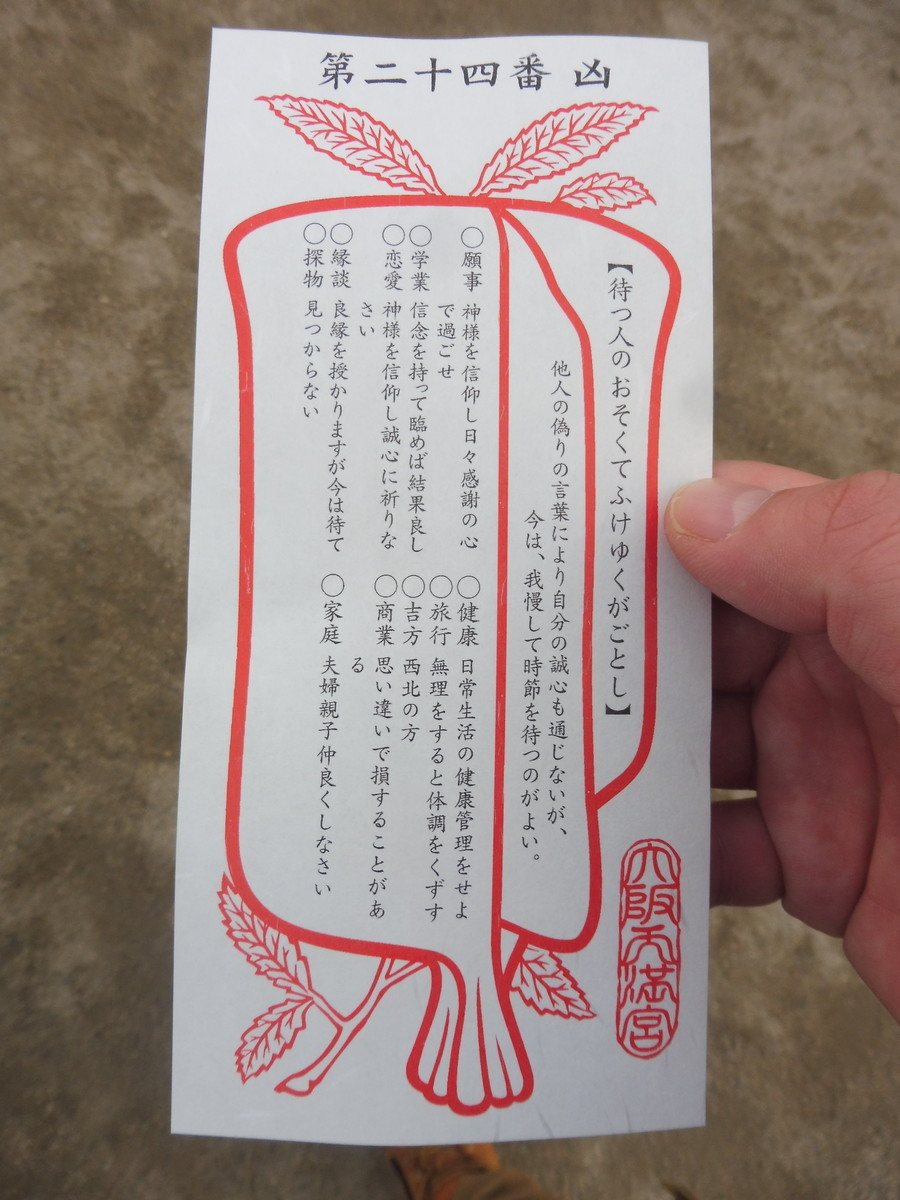 第二十四番 凶
【待つ人のおそくてふけゆくがごとし】
他人の偽りの言葉により自分の誠心も通じないが、
今は、我慢して時節を待つのがよい。
○願事 神様を信仰し日々感謝の心
で過ごせ
○学業 信念を持って臨めば結果良し
○恋愛 神様を信仰し誠心に祈りな
さい
○縁談 良縁を授かりますが今は待て
○探物 見つからない
○健康 日常生活の健康管理をせよ
○旅行 無理をすると体調をくずす
○吉方 西北の方
○商業 思い違いで損することがあ
る
○家庭 夫婦親子仲良くしなさい
大阪天満宮